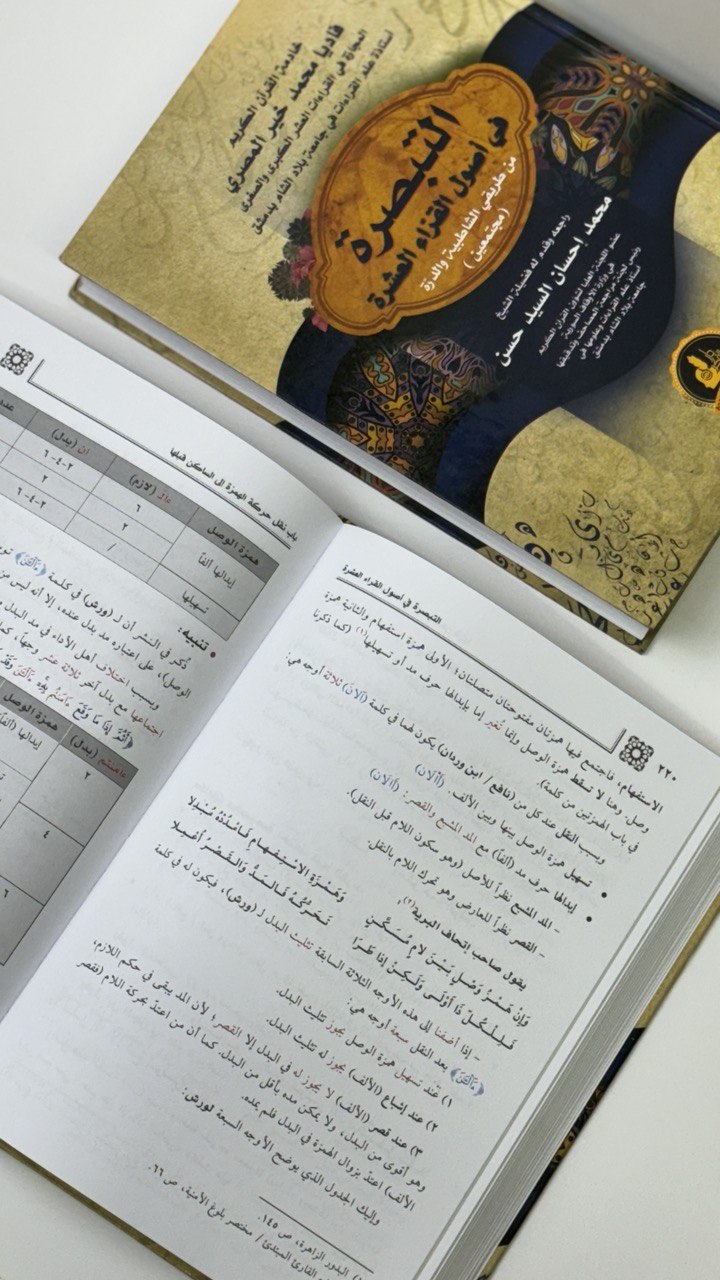 خادمة القرآن الكريم
فاديا محمد خير المصري
المجازة في القراءات العشر الكبرى والصغرى
أستاذة عقد القراءات في جامعة بلاد الشام بدمشق
التبصرة
في أصول القراء العشرة
من طريقي الشاطبية والدرة
(مجتمعين)
راجعه وقدم له فضيلة الشيخ
محمد إحسان السيد حسن
عضو اللجنة العليا لشؤون القرآن الكريم
في وزارة الأوقاف السورية
جامعة بلاد الشام بدمشق
٢٢٠
التبصرة في أصول القراء العشرة
الاستفهام، فاجتمع فيها همزتان مفتوحتان متصلتان؛ الأولى همزة استفهام والثانية همزة
وصل. وهنا لا تسقط همزة الوصل وإنما تُغير إما بإبدالها حرف مد أو تسهيلها(١) (كما ذكرنا
في باب الهمزتين من كلمة).
وبسبب النقل عند كل من (نافع / ابن وردان) يكون لهما في كلمة (آلآن) ثلاثة أوجه هي:
• تسهيل همزة الوصل بينها وبين الألف. (أالآن)
• إبدالها حرف مد (ألفاً) مع المد المشبع والقصر: (أالآن)
- المد المشبع نظراً للأصل (وهو سكون اللام قبل النقل).
- القصر نظراً للعارض وهو تحرك اللام بالنقل.
يقول صاحب إتحاف البرية(٢).
وَإِنْ هَمْزُ وَصْلٍ بَيْنَ لَامٍ مُسَكَّنٍ وَهَمْزَةِ الاسْتِفْهَامِ فَامْدُدْهُ مُبْدِلَا
فَلِلْكُلِّ ذَا أَوْلَى وَلَكِنْ إِذَا طَرَا تَحَرُّكُهُ فَالمَدُّ وَالقَصْرُ أُعْمِلَا
- إذا أضفنا إلى هذه الأوجه الثلاثة السابقة تثليث البدل لـ (ورش)، فيكون له في كلمة
بعد النقل سبعة أوجه هي:
١) عند تسهيل همزة الوصل يجوز تثليث البدل.
٢) عند إشباع (الألف) يجوز له تثليث البدل.
٣) عند قصر (الألف) لا يجوز له في البدل إلا القصر؛ لأن المد يبقى في حكم اللازم،
وهو أقوى من البدل، ولا يمكن مده بأقل من البدل. كما أن من اعتدّ بحركة اللام (فقصر
الألف) اعتدّ بزوال الهمزة في البدل فلم يمده.
وإليك الجدول الذي يوضح الأوجه السبعة لورش:
(١) البدور الزاهرة، ص ١٤٥.
القارئ المبتدئ / مختصر بلوغ الأمنية، ص ٦٦.
باب نقل حركة الهمزة إلى الساكن قبلها
همزة الوصل
ءال (لازم)
ان (بدل)
عدد
إبدالها ألفاً
٦
٢-٤-٦
٢
٢
تسهيلها
/
٢-٤-٦
• تنبيه:
ذُكر في النشر أن لـ (ورش) في كلمة
الوصل)، على اعتباره مد بدل عنده، إلا أنه ليس من
وبسبب اختلاف أهل الأداء في مد البدل
اجتماعها مع بدل آخر ثلاثة عشر وجهاً، كما
ءامنتم (بدل)
همزة الوصل
٢
إبدالها (ألفاً)
٤
٦